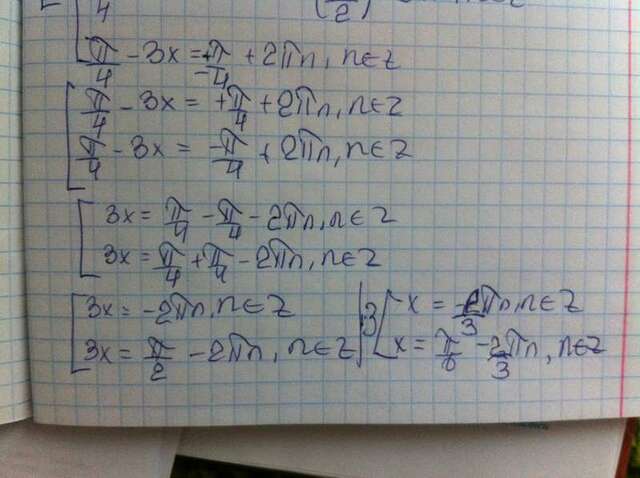 π/4 - 3x = ±π/4 + 2πn, n∈Z
π/4 - 3x = +π/4 + 2πn, n∈Z
π/4 - 3x = -π/4 + 2πn, n∈Z
3x = π/4 - π/4 - 2πn, n∈Z
3x = π/4 + π/4 - 2πn, n∈Z
3x = -2πn, n∈Z |:3 x = -2/3 πn, n∈Z
3x = π/2 - 2πn, n∈Z x = π/6 - 2/3 πn, n∈Z